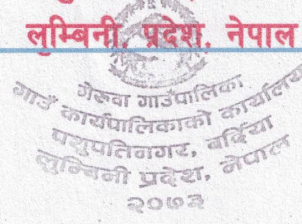 लुम्बिनी, प्रदेश, नेपाल
गेरुवा गाउँपालिका
गाउँ कार्यपालिकाको कार्यालय
पशुपतिनगर, बर्दिया
लुम्बिनी प्रदेश, नेपाल
२०७३